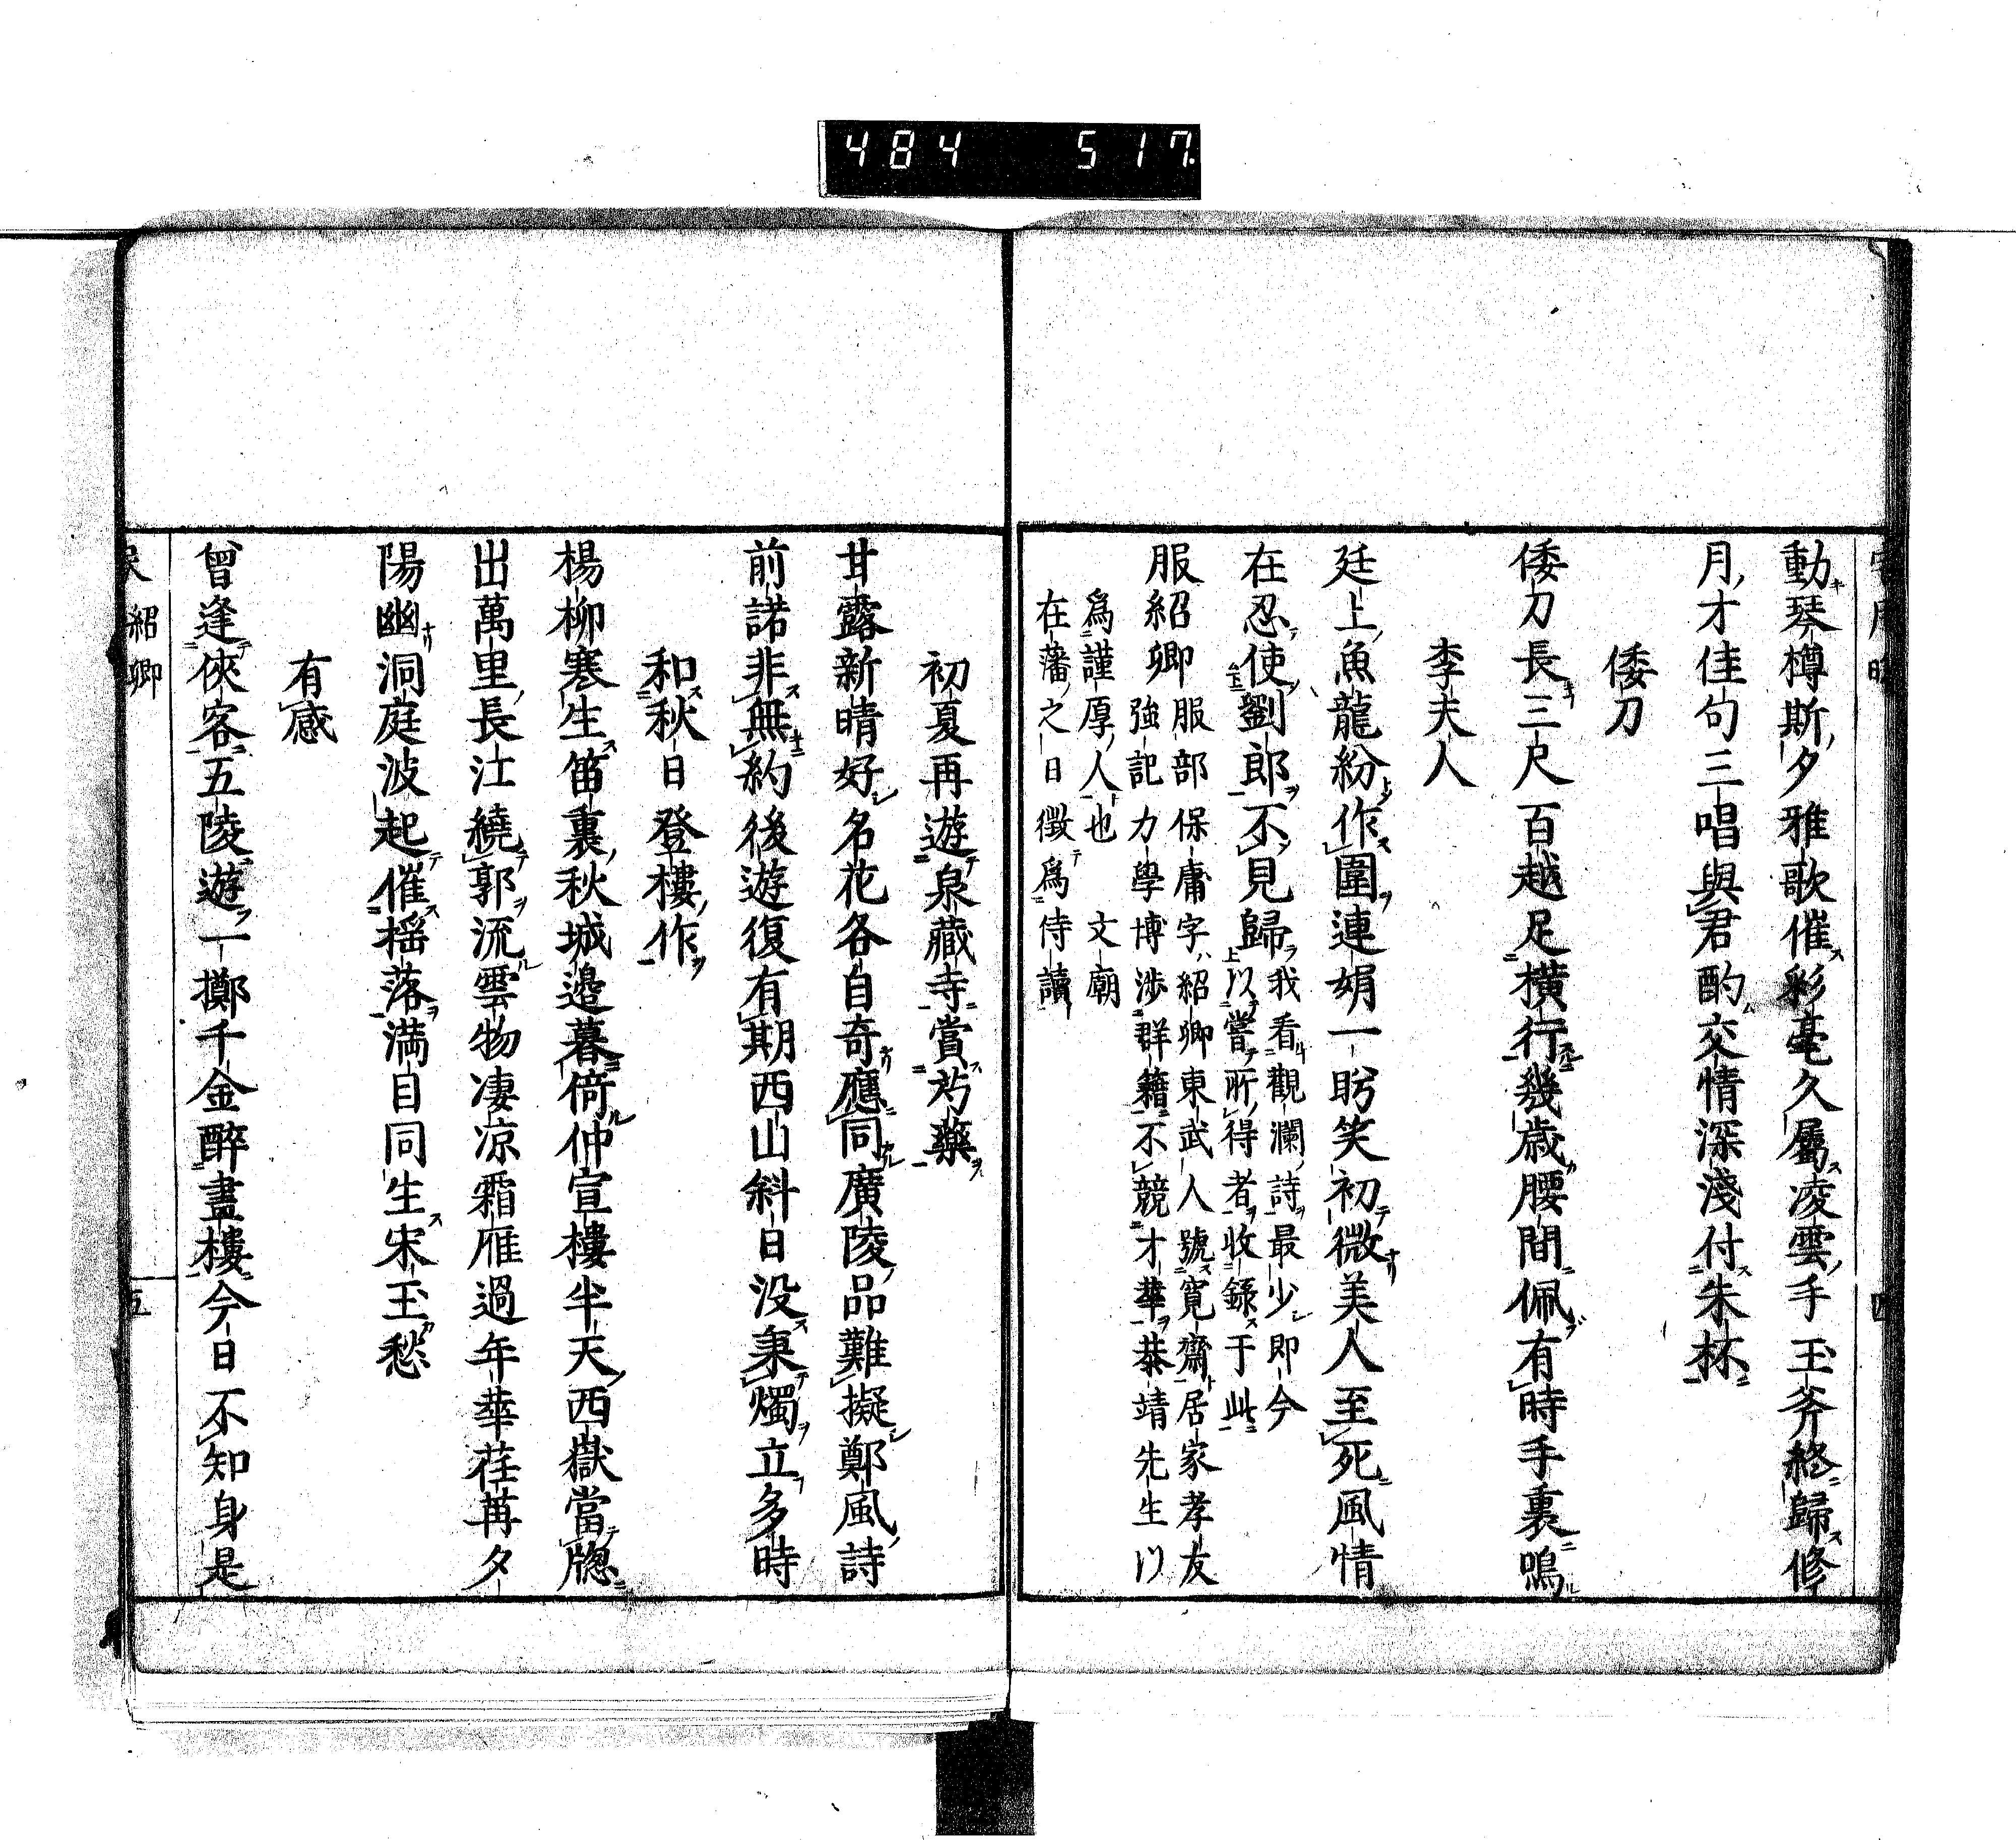 484 517
動琴樽斯夕雅歌催彩毫久屬凌雲手玉斧終歸修
月才佳句三唱與君酌交情深淺付朱杯
倭刀
倭刀長三尺百越足橫行幾歲腰間佩有時手裏鳴
李夫人
廷上魚龍紛作圍連娟一眄笑初微美人至死風情
在忍使劉郎不見歸
我看觀瀾詩最少即今
以嘗所得者收錄于此
服紹卿
服部保庸字紹卿東武人號寬齋居家孝友
強記力學博涉群籍不競才華恭靖先生以
為謹厚人也文廟
在藩之日徵為侍讀
初夏再遊泉藏寺賞芍藥
甘露新晴好名花各自奇應同廣陵品難擬鄭風詩
前諾非無約後遊復有期西山斜日没秉燭立多時
和秋日登樓作
楊柳寒生笛裏秋城邉暮倚仲宣樓半天西嶽當牕
出萬里長江繞郭流雲物凄凉霜雁過年華荏苒夕
陽幽洞庭波起催揺落満目同生宋玉愁
有感
曾逢俠客五陵遊一擲千金醉畫樓今日不知身是
紹卿
五